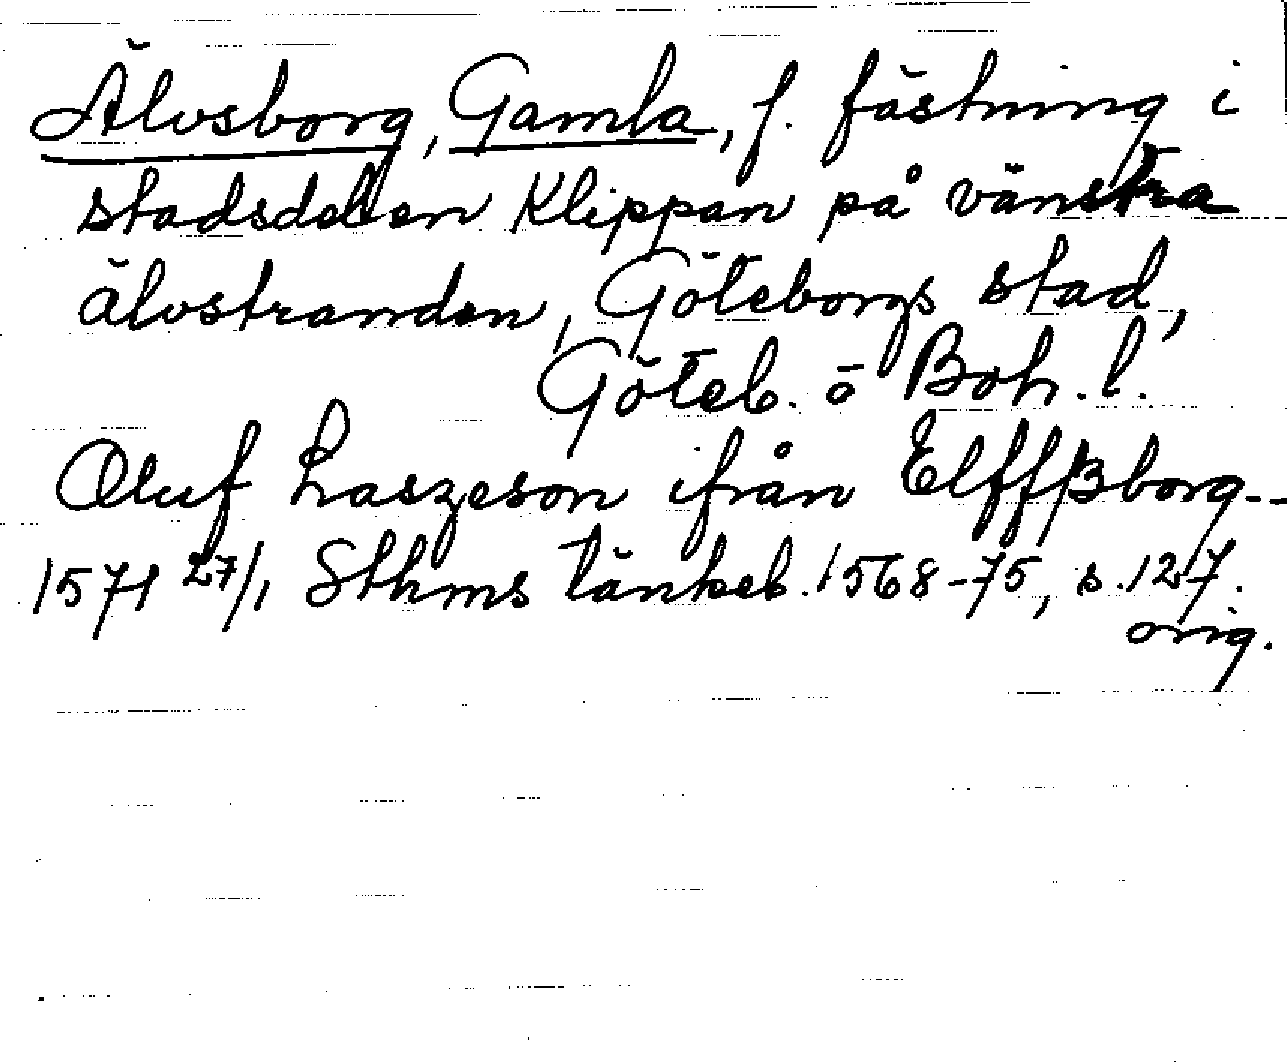 Älvsborg, Gamla, f. fästning i
stadsdelen Klippan på vänstra
älvstranden, Göteborgs stad,
Göteb. o Boh. l.
Oluf Laszeson ifrån Elffßborg--
1571 27/1 Sthms tänkeb. 1568-75, s. 127.
orig.